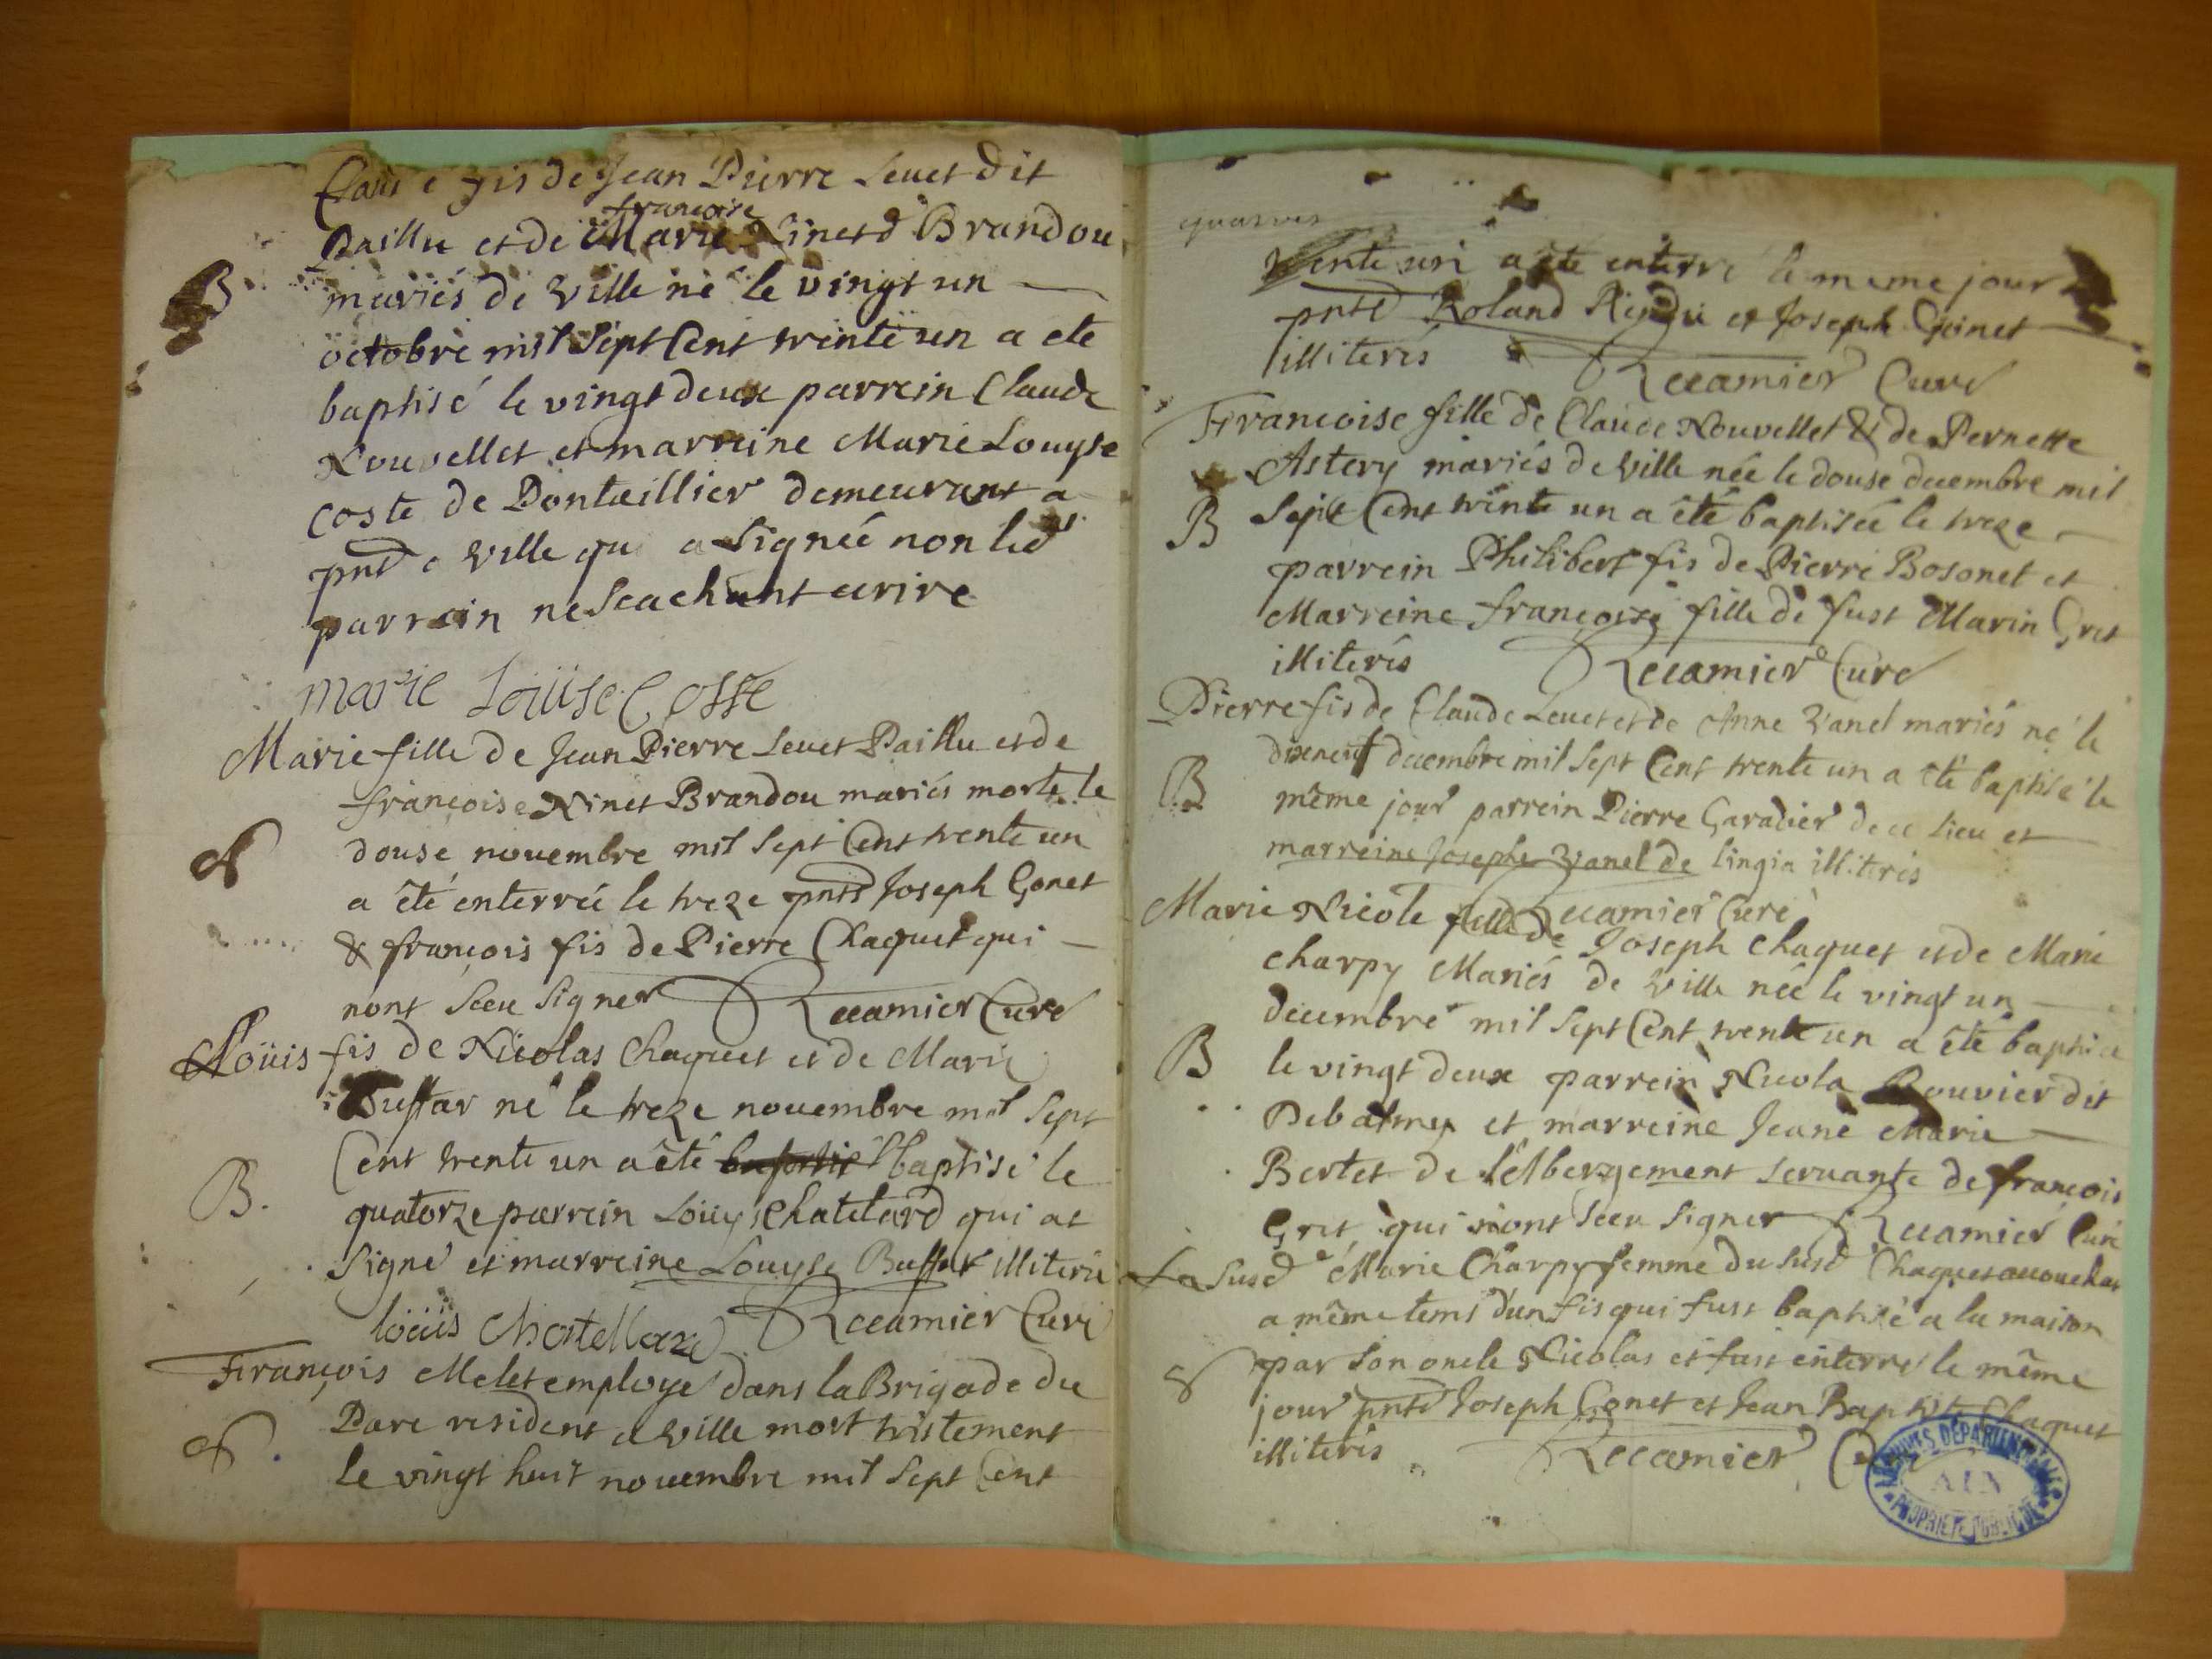 Claude fis de Jean Pierre Levet dit
Paillu et de Marie françoise Ninet d Brandou
B mariés de Ville né le vingt un
octobre mil Sept Cent trente un a ete
baptisé le vingt deux parrein Claude
Nouvellet et marreine Marie Louyse
Coste de Dontaillier demeurant a
pnt a Ville qui a Signée non led
parrain ne Scachant ecrire
marie Loüise Cosste
Marie fille de Jean Pierre Levet Paillu et de
françoise Ninet Brandou mariés morte le
douse novembre mil Sept Cent trente un
a êté enterrée le treze pnts Joseph Gonet
& françois fis de Pierre Chaquet qui
nont Sceu Signer Recamier Curé
Loüis fis de Nicolas Chaquet et de Marie
Buffar né le treze novembre mil Sept
Cent trente un a êté baptisé le
B. quatorze parrein Loüys Chatelard qui at
Signé et marreine Louyse Buffar illiterée
loüis Chastellard Recamier Curé
François Melet employé dans la Brigade du
Parc resident a Ville mort tristement
le vingt huit novembre mil Sept Cent
trente un a êté enterré le meme jour
pnts Roland et Joseph Gonet
illiterés Recamier Curé
Francoise fille de Claude Nouvellet & de Pernette
Astery mariés de Ville née le douse decembre mil
B Sept Cent trente un a êté baptisée le treze
parrein Philibert fis de Pierre Bosonet et
Marreine françoise fille de fust Marin Gret
illiterés Recamier Curé
Pierre fis de Claude Levet et de Anne Vanel mariés né le
dixneuf decembre mil Sept Cent trente un a êté baptisé le
B même jour parrein Pierre Garadier de ce lieu et
marreine Josephe Vanel de lingia illiterés
Recamier Curé
Marie Nicole fille de Joseph Chaquet et de Marie
Charpy Mariés de Ville née le vingt un
decembre mil Sept Cent trente un a êté baptisée
B le vingt deux parrein Nicola Bouvier dit
Debatmey et marreine Jeane Marie
Bertet de l'Albergement Servante de françois
Gret qui nont Sceu Signer Recamier Curé
La Susd Marie Charpy femme du Susd Chaquet accoucha
a même tems d'un fis qui fust baptisé a la maison
par Son oncle Nicolas et fust enterré le même
jour pnts Joseph Gonet et Jean Baptiste Chaquet
illiterés Recamier Curé
ARCHIVES DEPARTEMENTALES
AIN
PROPRIETE PUBLIQUE